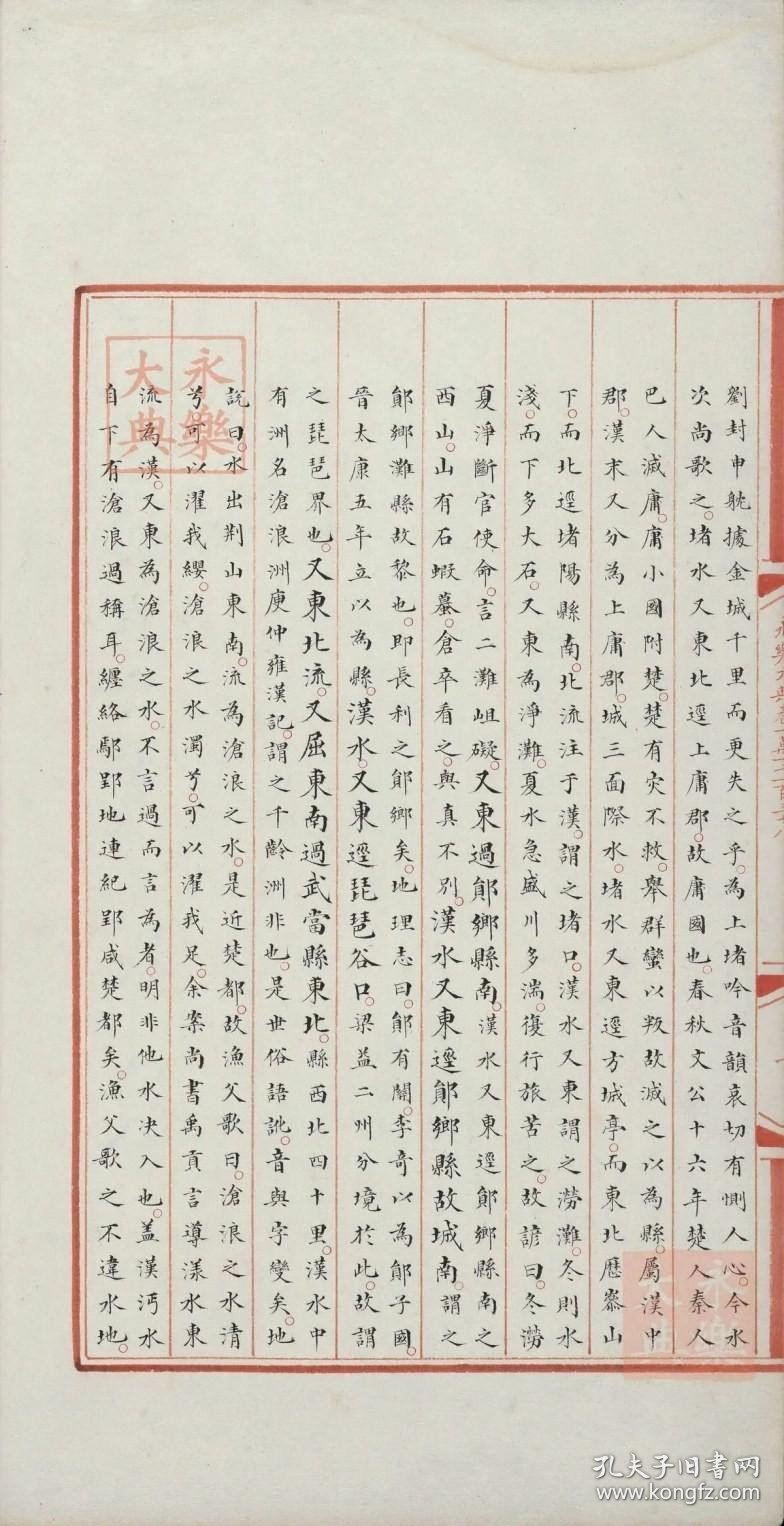 劉封申躭據金城千里而更失之乎。為上堵吟音韻哀切有惻人心。今水
次尚歌之。堵水又東北逕上庸郡。故庸國也。春秋文公十六年楚人秦人
巴人滅庸。庸小國附楚。楚有灾不救。舉群蠻以叛故滅之以為縣。屬漢中
郡。漢末又分為上庸郡。城三面際水。堵水又東逕方城亭。而東北歷嵞山
下。而北逕堵陽縣南。北流注于漢。謂之堵口。漢水又東謂之澇灘。冬則水
淺。而下多大石。又東為淨灘。夏水急盛川多湍。復行旅苦之。故諺曰。冬澇
夏淨斷官使命。言二灘岨礙。又東過鄖鄉縣南。漢水又東逕鄖鄉縣南之
西山。山有石蝦蟇。倉卒看之。與真不別。漢水又東逕鄖鄉縣故城南。謂之
鄖鄉灘縣故黎也。即長利之鄖鄉矣。地理志曰。鄖有關。李奇以為鄖子國。
晉太康五年立以為縣。漢水。又東逕琵琶谷口。梁益二州分境於此。故謂
之琵琶界也。又東北流。又屈東南過武當縣東北。縣西北四十里。漢水中
有洲名滄浪洲庾仲雍漢記。謂之千齡洲非也。是世俗語訛。音與字變矣。地
說曰。水出荆山東南。流為滄浪之水。是近楚都。故漁父歌曰。滄浪之水清
兮可以濯我纓。滄浪之水濁兮。可以濯我足。余案尚書禹貢言導漾水東
流為漢。又東為滄浪之水。不言過而言為者。明非他水决入也。盖漢沔水
自下有滄浪過稱耳。纏絡鄢郢地連紀郢咸楚都矣。漁父歌之不違水地。
永樂
大典
孔夫子旧书网
www.kongfz.com